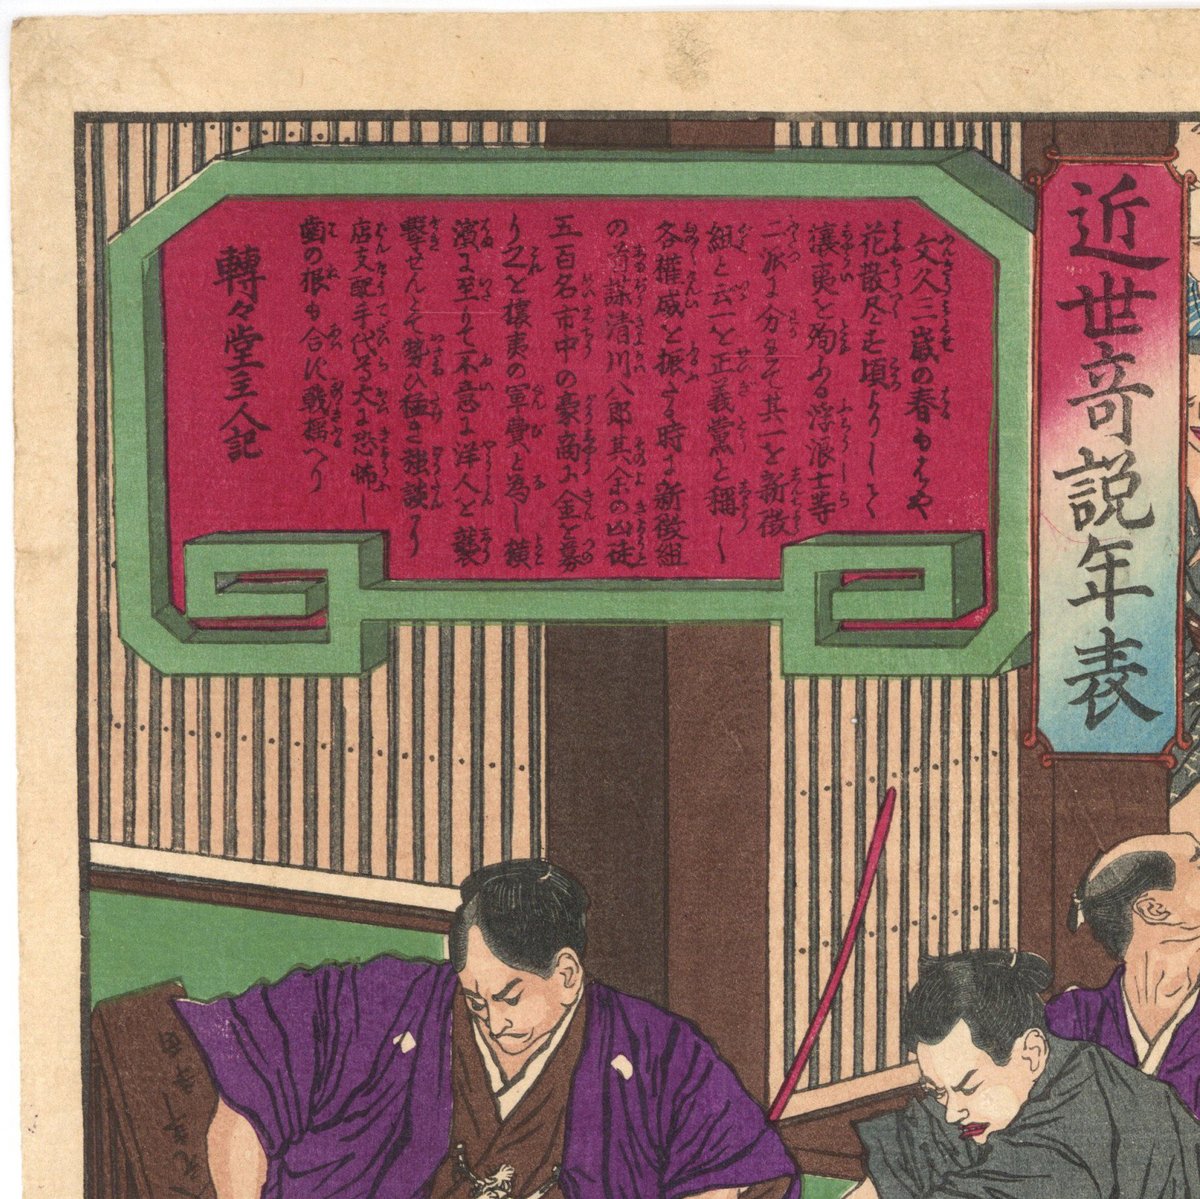 近世奇説年表
文久三歳の春もはや
花散尽す頃よりして
攘夷を殉ふる浮浪士等
二派に分れて其一を新徴
組と云一を正義党と称し
各権威を振ふる時に新徴組
の首謀清川八郎其余の凶徒
五百名市中の豪商に金を募
り之を攘夷の軍費と為し横
濱に至りて不意に洋人を襲
撃せんとて勢ひ猛き強談より
店支配手代等大に恐怖し
歯の根も合ず戦揺へり
轉々堂主人記